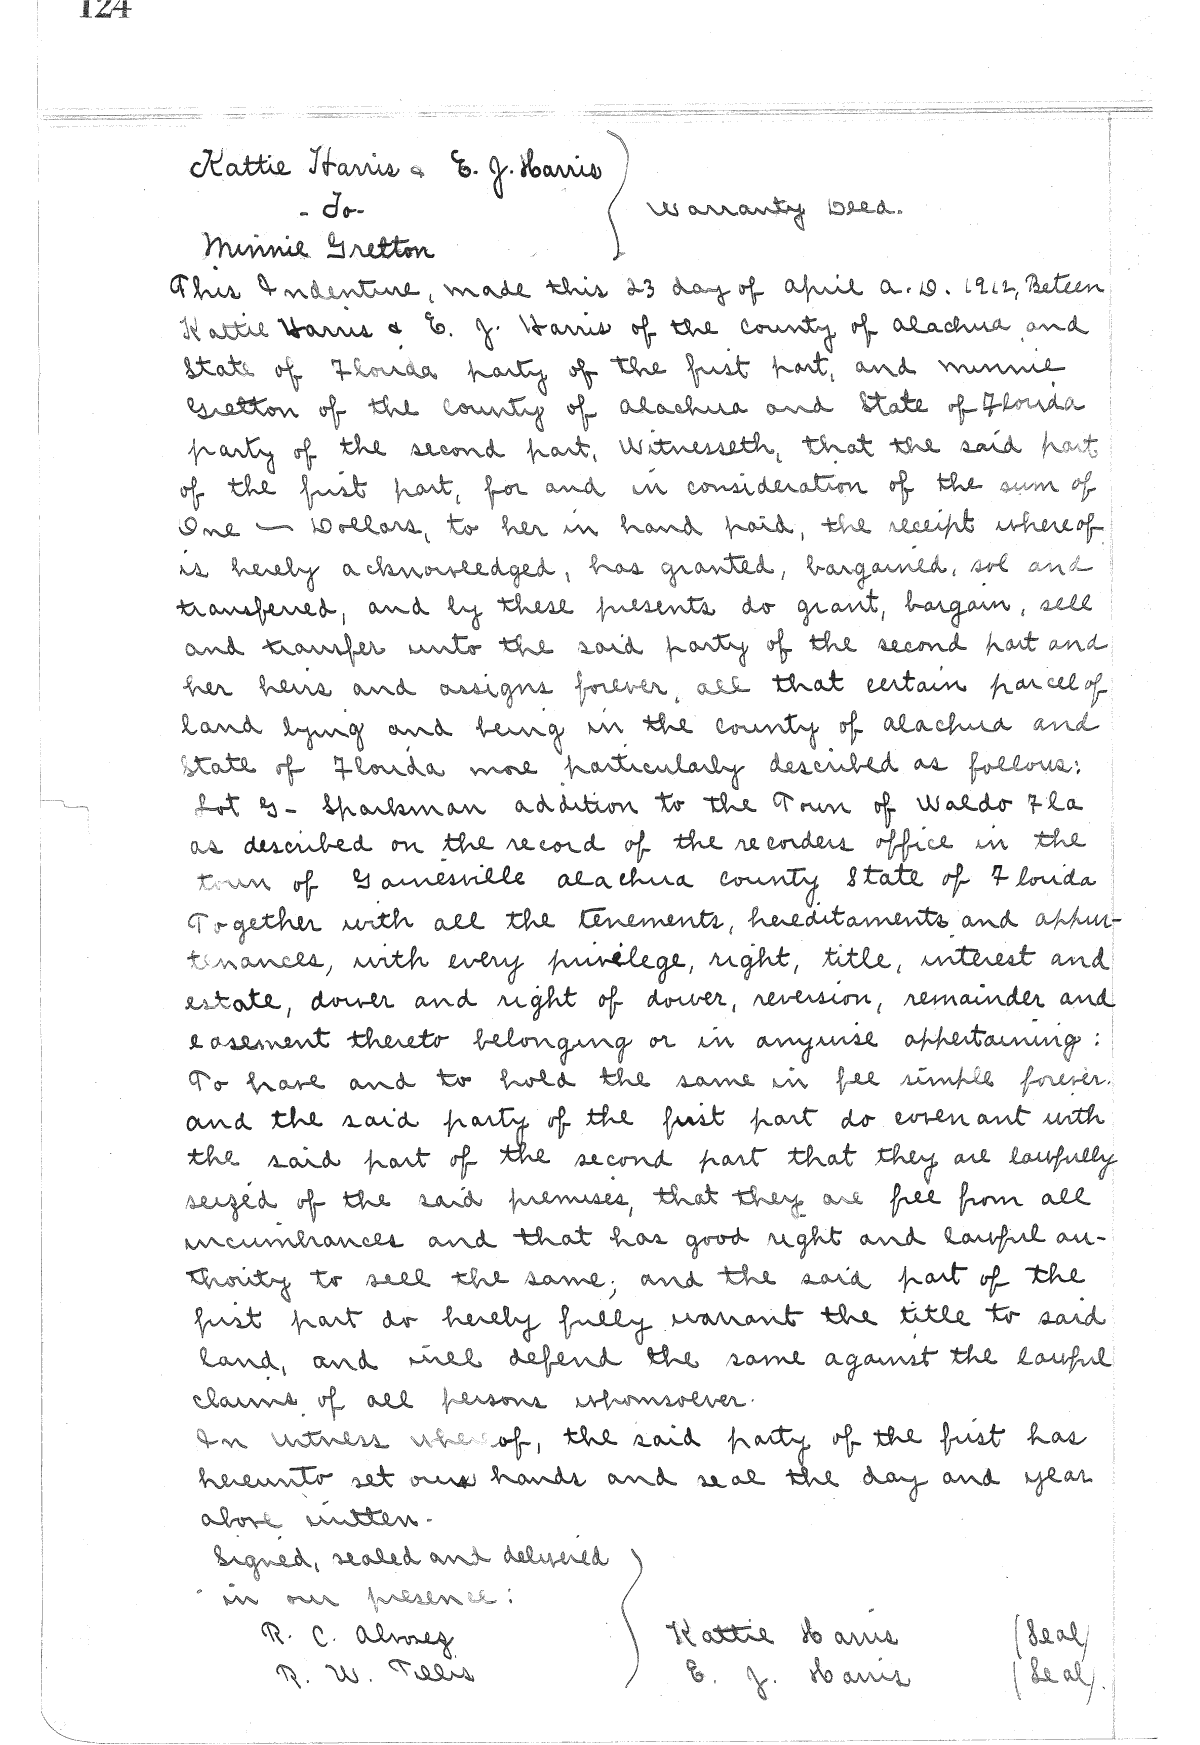 124
Kattie Harris & E. J. Harris
- To -
Warranty Deed.
Minnie Gretton
This Indenture, made this 23 day of April A.D. 1912, Beteen
Kattie Harris & E. J. Harris of the County of Alachua and
State of Florida party of the first part, and Minnie
Gretton of the County of Alachua and State of Florida
party of the second part, Witnesseth, that the said part
of the first part, for and in consideration of the sum of
One — Dollars, to her in hand paid, the receipt whereof
is hereby acknowledged, has granted, bargained, sol and
transferred, and by these presents do grant, bargain, sell
and transfer unto the said party of the second part and
her heirs and assigns forever, all that certain parcel of
land lying and being in the County of Alachua and
State of Florida more particularly described as follows:
Lot G - Sparkman addition to the Town of Waldo Fla
as described on the record of the recorders office in the
town of Gainesville Alachua County State of Florida
Together with all the tenements, hereditaments and appur-
tenances, with every privilege, right, title, interest and
estate, dower and right of dower, reversion, remainder and
easement thereto belonging or in anywise appertaining:
To have and to hold the same in fee simple forever.
and the said party of the first part do covenant with
the said part of the second part that they are lawfully
seized of the said premises, that they are free from all
incumbrances and that has good right and lawful au-
thority to sell the same; and the said part of the
first part do hereby fully warrant the title to said
land, and will defend the same against the lawful
claims of all persons whomsoever.
In witness whereof, the said party of the first has
hereunto set our hands and seal the day and year
above written.
Signed, sealed and delivered
in our presence:
R. C. Alvorez Kattie Harris (Seal)
R. W. Tillis E. J. Harris (Seal).